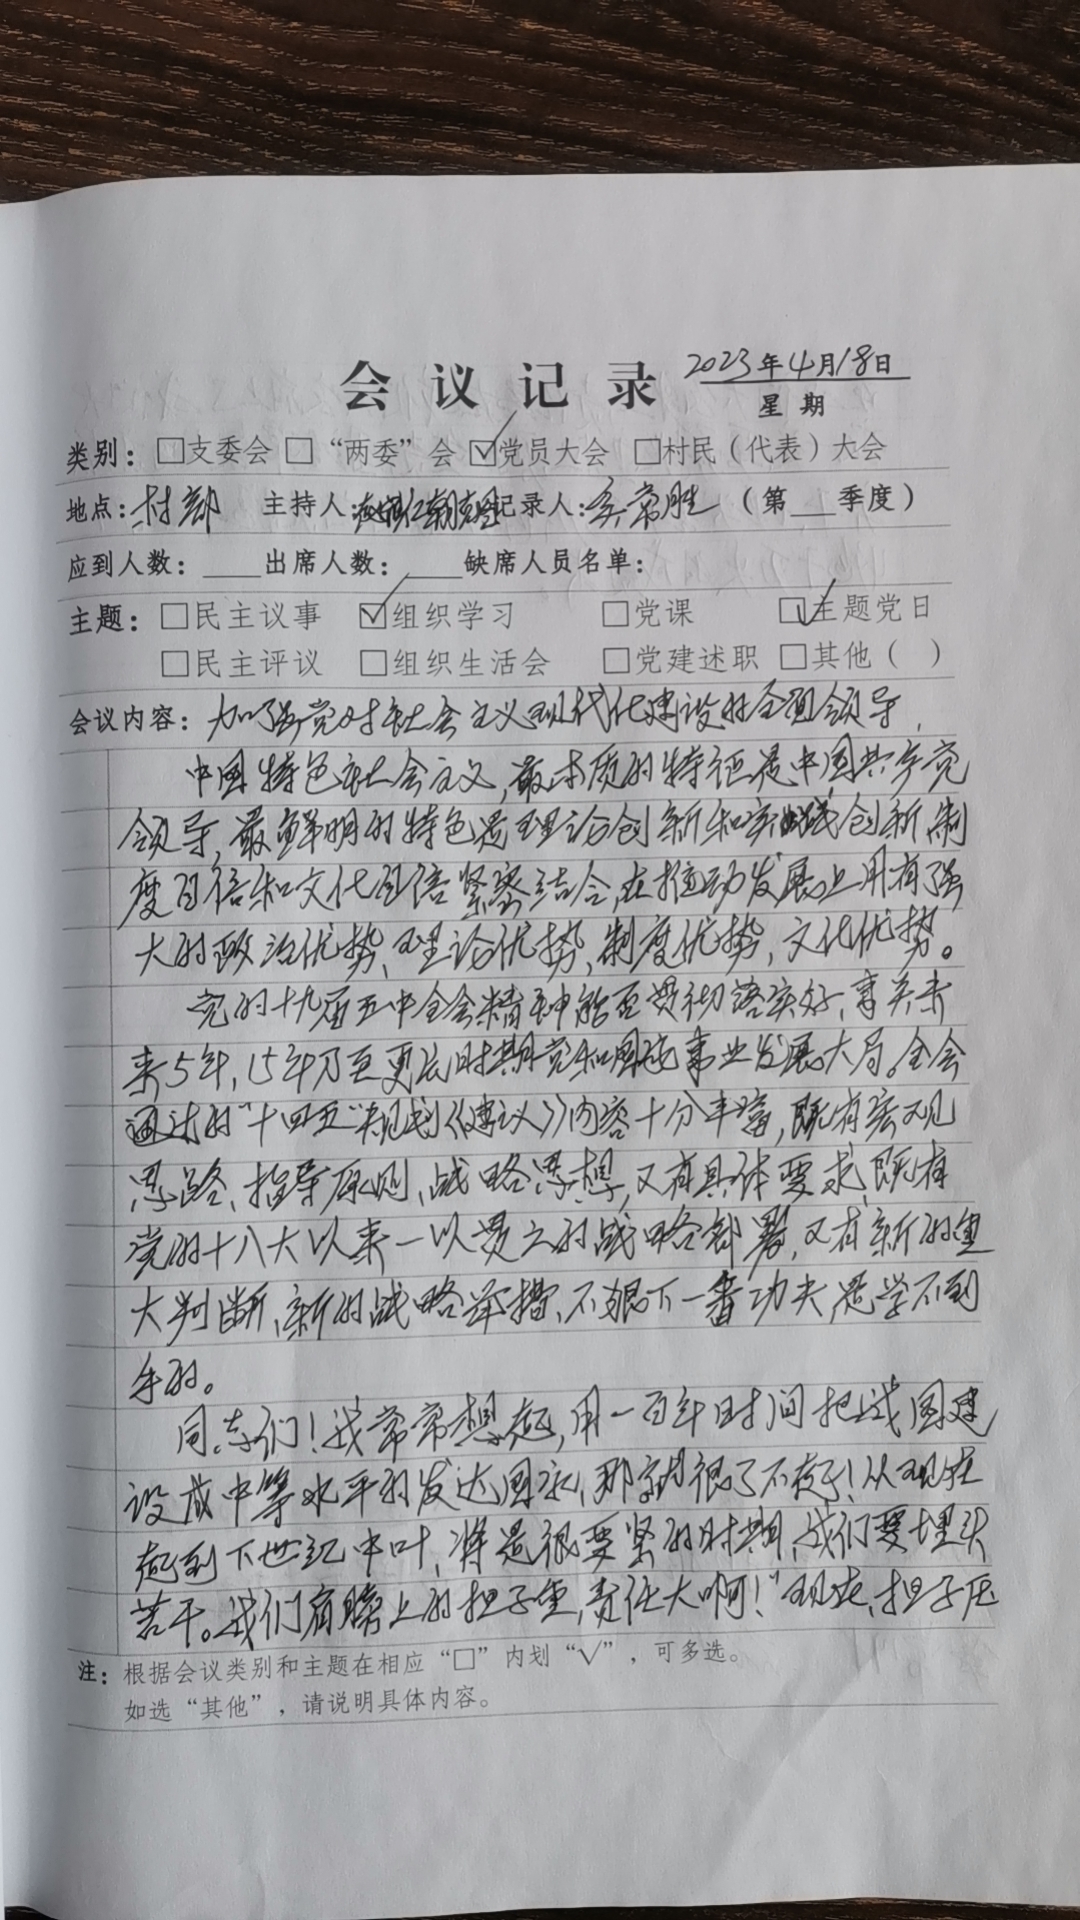 会议记录 2023年4月18日
星期
类别：□支委会 □“两委”会 ☑党员大会 □村民（代表）大会
地点：村部 主持人： 记录人：吴常胜 （第___季度）
应到人数：____出席人数：____缺席人员名单：
主题：□民主议事 ☑组织学习 □党课 ☑主题党日
□民主评议 □组织生活会 □党建述职 □其他（ ）
会议内容：加强党对社会主义现代化建设的全面领导，
中国特色社会主义，最本质的特征是中国共产党
领导，最鲜明的特色是理论创新和实践创新，制
度自信和文化自信紧密结合，在推动发展上用有强
大的政治优势，理论优势，制度优势，文化优势。
党的十九届五中全会精神能否贯彻落实好，事关未
来5年，15年乃至更长时期党和国家事业发展大局。全会
通过的“十四五”规划《建议》内容十分丰富，既有宏观
思路、指导原则、战略思想，又有具体要求，既有
党的十八大以来一以贯之的战略部署，又有新的重
大判断、新的战略举措，不狠下一番功夫，是学不到
手的。
同志们！我常常想起，用一百年时间把我国建
设成中等水平的发达国家，那就很了不起！从现在
起到下世纪中叶，将是很要紧的时期，我们要埋头
苦干。我们肩膀上的担子重，责任大啊！”现在，担子压
注：根据会议类别和主题在相应“□”内划“√”，可多选。
如选“其他”，请说明具体内容。